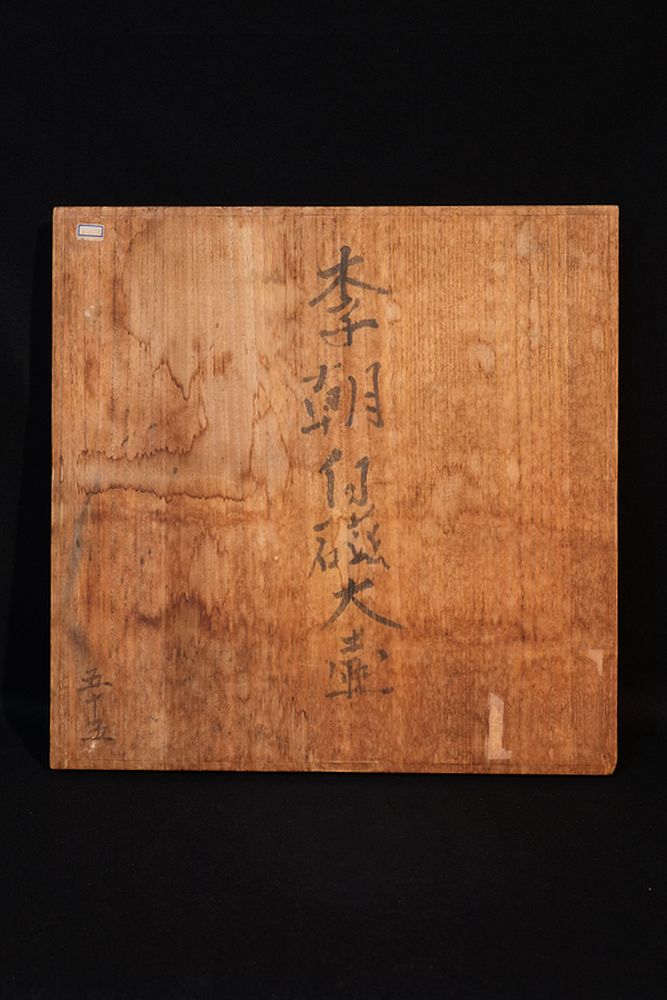 李朝白磁大壺
五十五